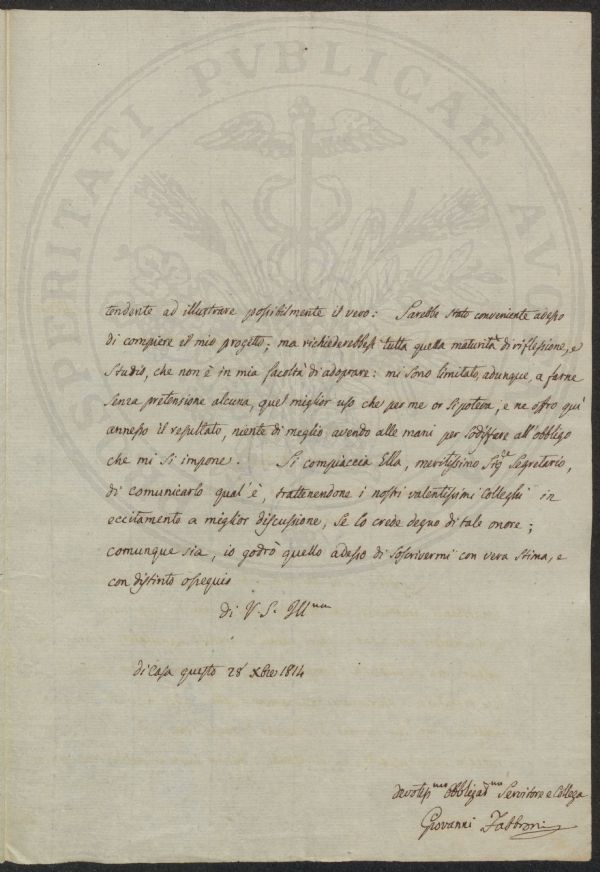 PROSPERITATI PVBLICAE AVG
tendente ad illustrare possibilmente il vero: Sarebbe stato conveniente adesso
di compiere il mio progetto; ma richiederebbesi tutta quella maturità di riflessione, e
Studio, che non è in mia facoltà di adoprare: mi sono limitato, adunque, a farne
senza pretensione alcuna, quel miglior uso che per me or si poteva; e ne offro qui
annesso il resultato, niente di meglio avendo alle mani per sodisfare all'obbligo
che mi si impone. Si compiaccia Ella, meritissimo Sig.e Segretario,
di comunicarlo qual'è, trattenendone i nostri valentissimi Colleghi in
eccitamento a miglior discussione, se lo crede degno di tale onore;
comunque sia, io godrò quello adesso di soscrivermi con vera stima, e
con distinto ossequio
di V. S. Ill.ma
di Casa questo 28 Xbre 1814
devotiss.mo obbligat.mo Servitore e Collega
Giovanni Fabbroni